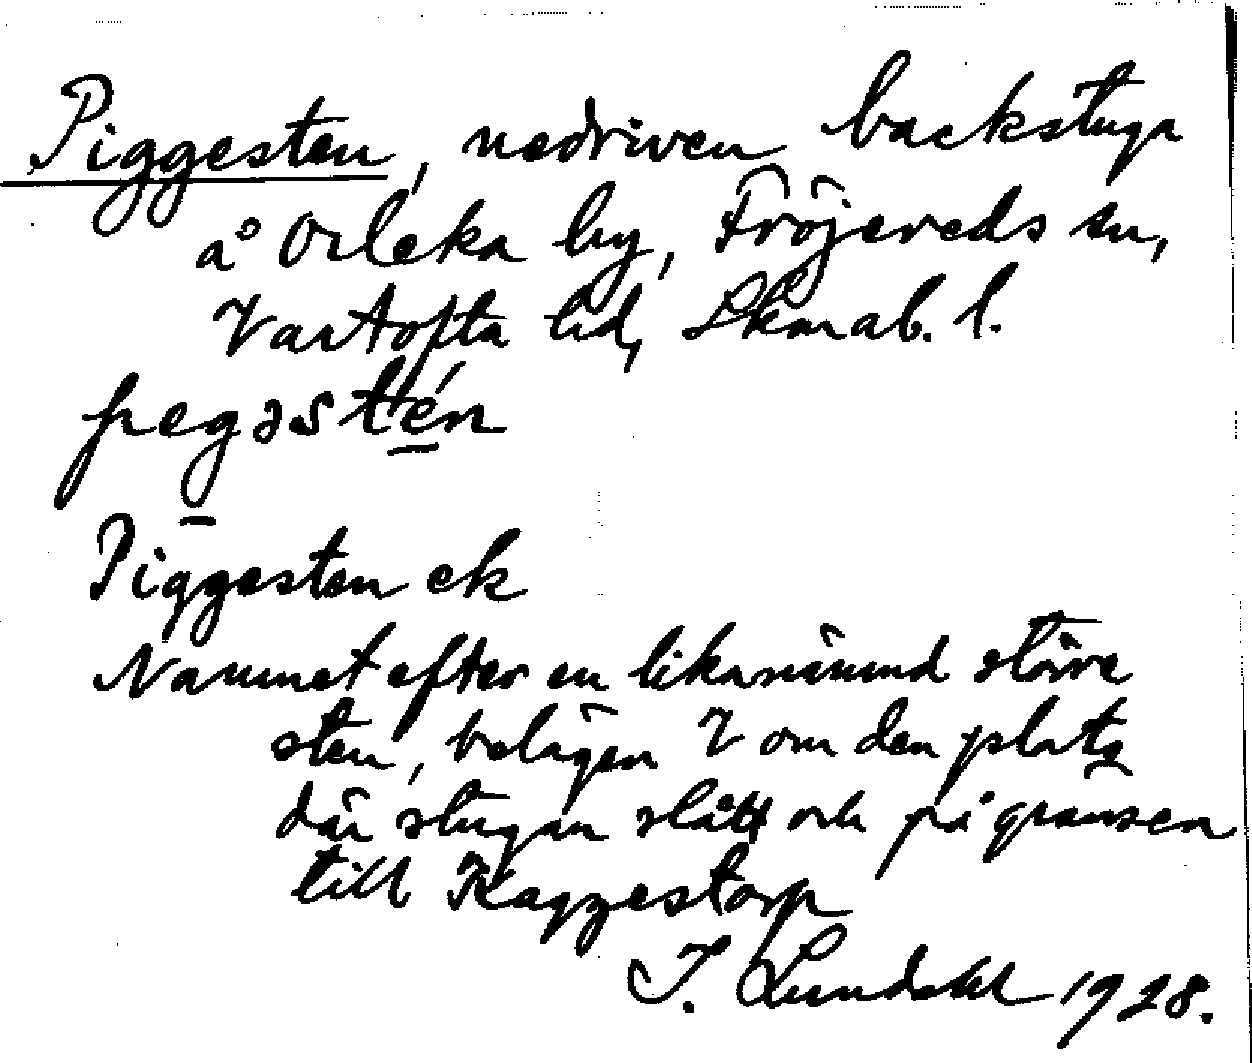 Piggesten, nedriven backstuga
å Orleka by, Fröjereds sn,
Vartofta hd, Skarab. l.
pegəstén
Piggesten ek
Namnet efter en likanämnd större
sten, belägen V om den plats
där stugan stått och på gränsen
till Kaggestorp
I. Lundahl 1928.